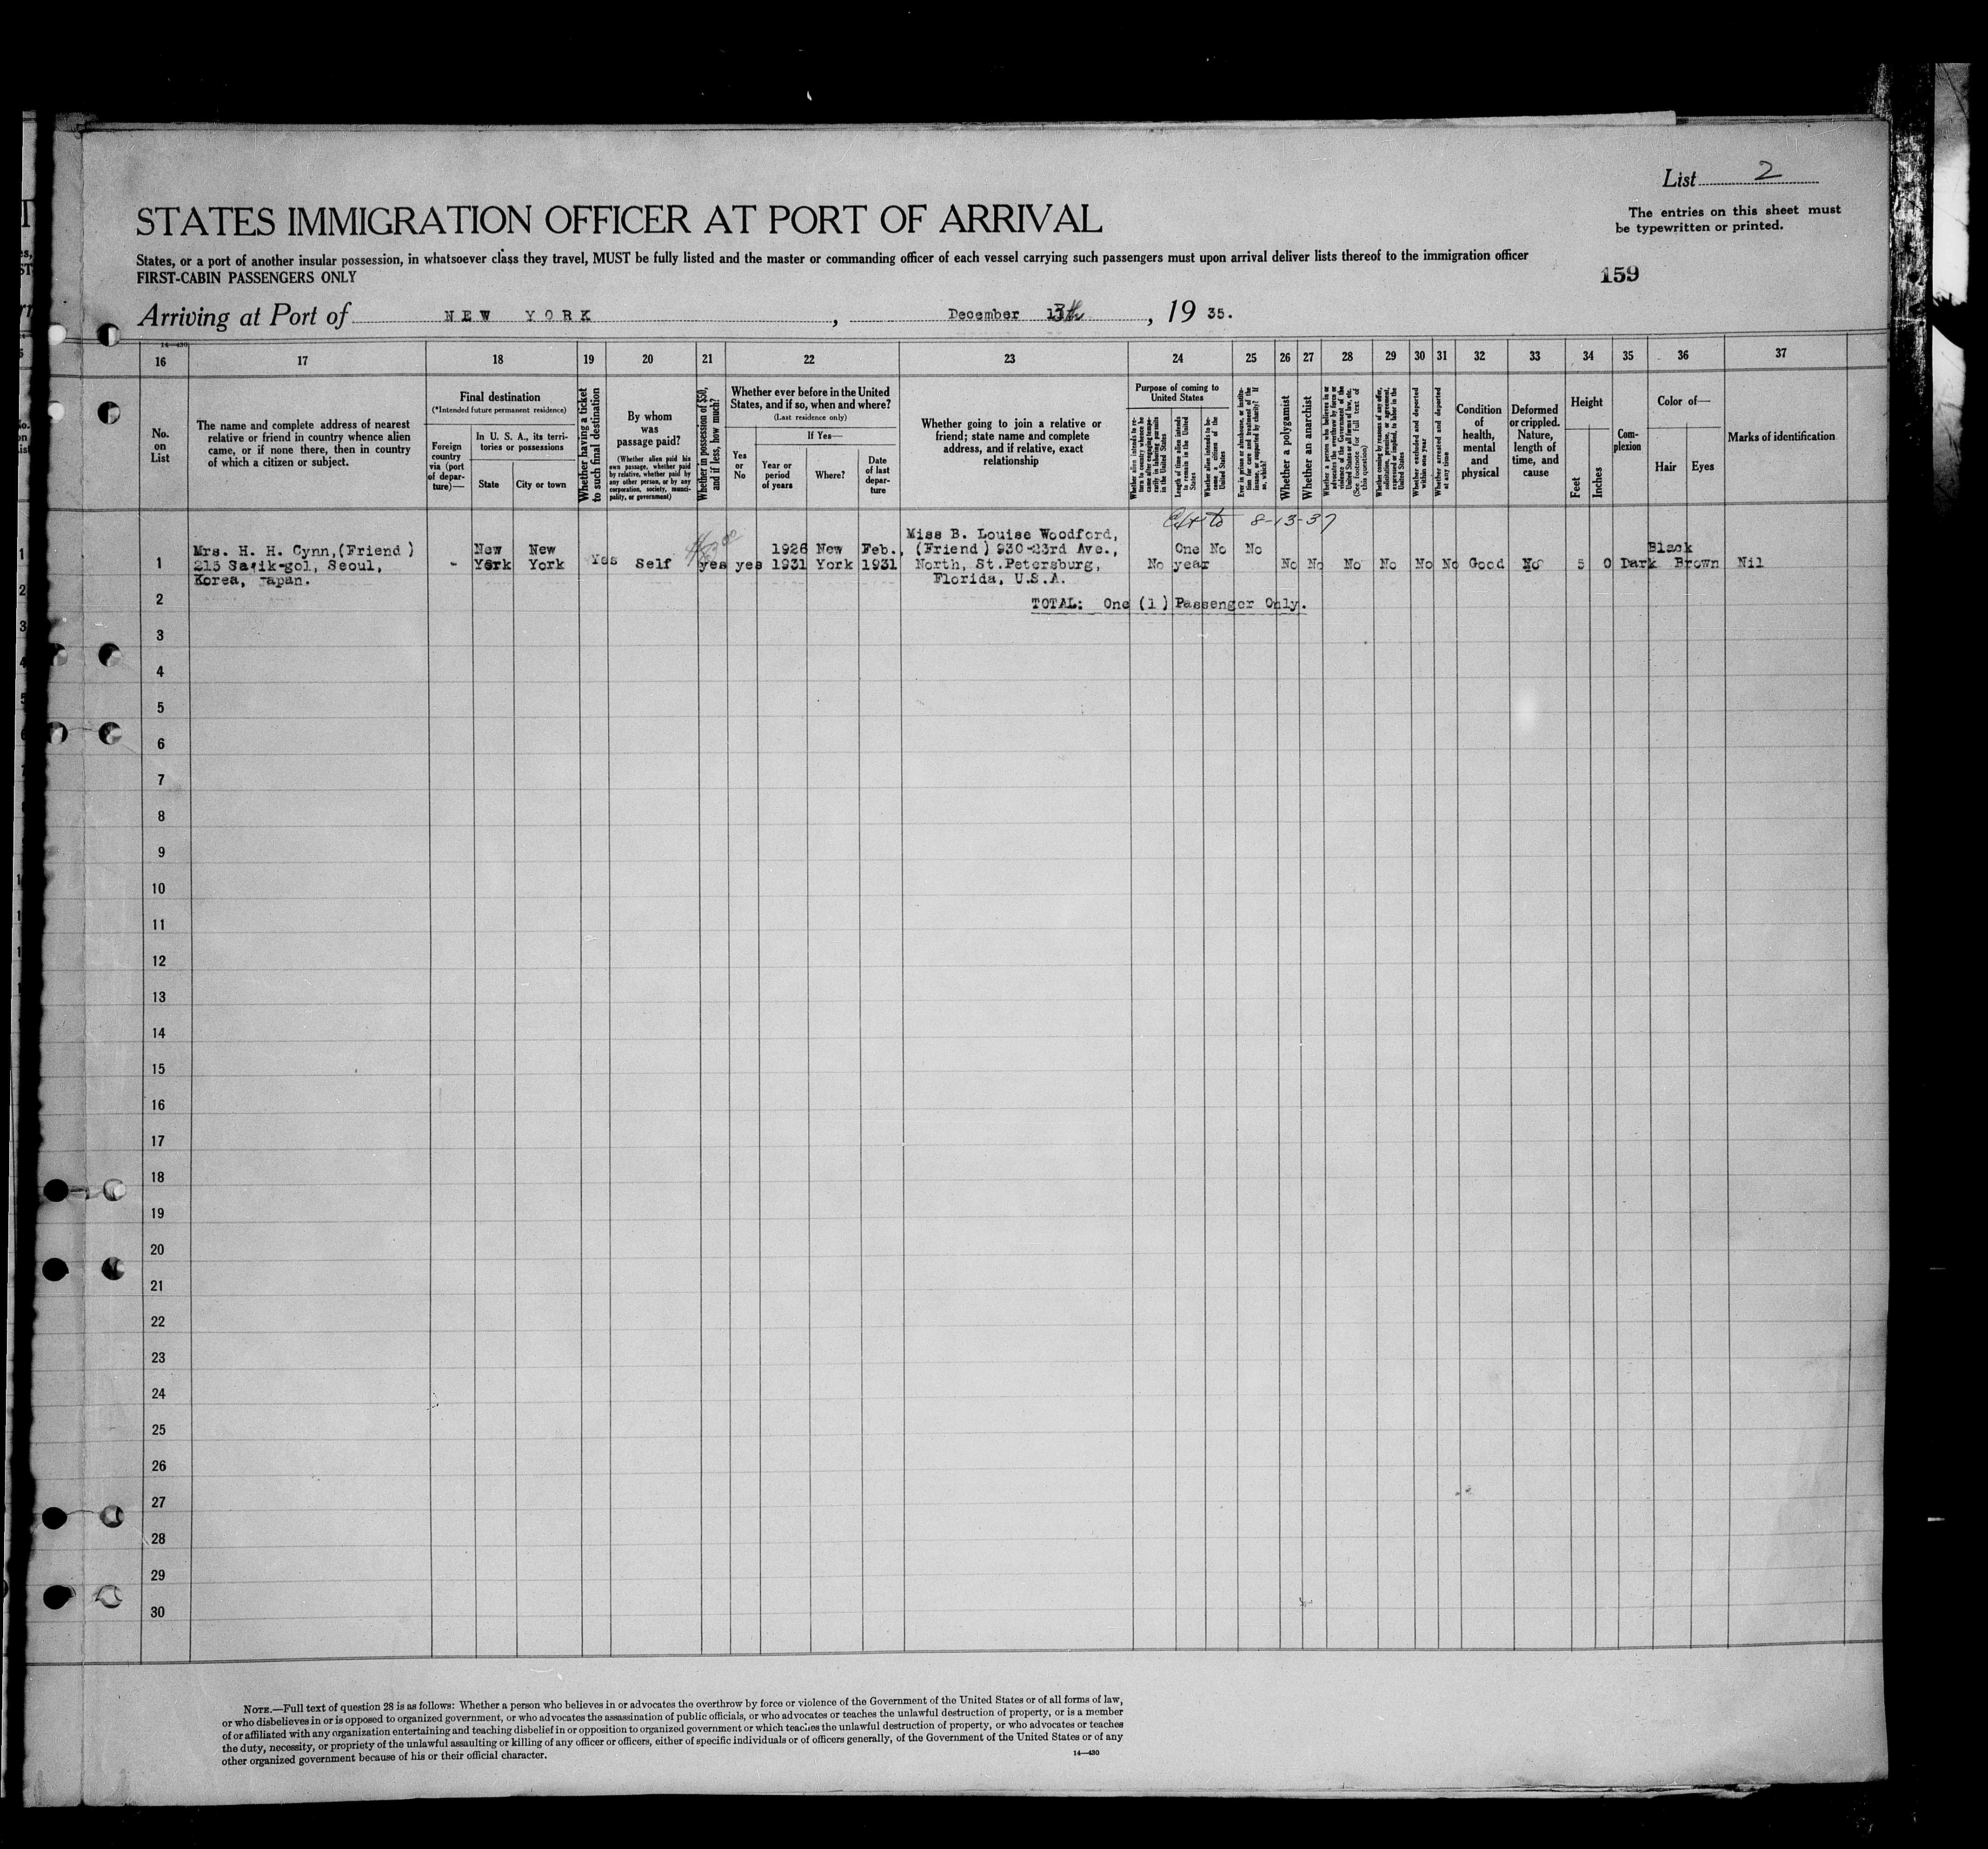 List 2
The entries on this sheet must
be typewritten or printed.
STATES IMMIGRATION OFFICER AT PORT OF ARRIVAL
States, or a port of another insular possession, in whatsoever class they travel, MUST be fully listed and the master or commanding officer of each vessel carrying such passengers must upon arrival deliver lists thereof to the immigration officer
FIRST-CABIN PASSENGERS ONLY
159
Arriving at Port of NEW YORK, December 13th, 19 35.
14—430
16 17 18 19 20 21 22 23 24 25 26 27 28 29 30 31 32 33 34 35 36 37
No.
on
List
The name and complete address of nearest
relative or friend in country whence alien
came, or if none there, then in country
of which a citizen or subject.
Final destination
(*Intended future permanent residence)
Foreign
country
via (port
of depar-
ture)—
In U. S. A., its terri-
tories or possessions
State
City or town
Whether having a ticket
to such final destination
By whom
was
passage paid?
(Whether alien paid his
own passage, whether paid
by relative, whether paid by
any other person, or by any
corporation, society, munici-
pality, or government)
Whether in possession of $50,
and if less, how much?
Whether ever before in the United
States, and if so, when and where?
(Last residence only)
Yes
or
No
If Yes—
Year or
period
of years
Where?
Date
of last
depar-
ture
Whether going to join a relative or
friend; state name and complete
address, and if relative, exact
relationship
Purpose of coming to
United States
Whether alien intends to re-
turn to country whence he
came after engaging tempo-
rarily in laboring pursuits
in the United States
Length of time alien intends
to remain in the United
States
Whether alien intends to be-
come a citizen of the
United States
Ever in prison or almshouse, or institu-
tion for care and treatment of the
insane, or supported by charity? If
so, which?
Whether a polygamist
Whether an anarchist
Whether a person who believes in or
advocates the overthrow by force or
violence of the Government of the
United States or all forms of law, etc.
(See footnote for full text of
this question)
Whether coming by reasons of any offer,
solicitation, promise, or agreement,
expressed or implied, to labor in the
United States
Whether excluded and deported
within one year
Whether arrested and deported
at any time
Condition
of
health,
mental
and
physical
Deformed
or crippled.
Nature,
length of
time, and
cause
Height
Feet
Inches
Com-
plexion
Color of—
Hair
Eyes
Marks of identification
8-13-37
1
Mrs. H. H. Cynn,(Friend)
215 Sajik-gol, Seoul,
Korea, Japan.
-
New
York
New
York
Yes
Self
yes
yes
1926
1931
New
York
Feb.,
1931
Miss B. Louise Woodford,
(Friend) 930-23rd Ave.,
North, St.Petersburg,
Florida, U.S.A.
No
One
year
No
No
No
No
No
No
No
No
Good
No
5
0
Dark
Black
Brown
Nil
2
TOTAL: One (1) Passenger Only.
3
4
5
6
7
8
9
10
11
12
13
14
15
16
17
18
19
20
21
22
23
24
25
26
27
28
29
30
NOTE.—Full text of question 28 is as follows: Whether a person who believes in or advocates the overthrow by force or violence of the Government of the United States or of all forms of law,
or who disbelieves in or is opposed to organized government, or who advocates the assassination of public officials, or who advocates or teaches the unlawful destruction of property, or is a member
of or affiliated with any organization entertaining and teaching disbelief in or opposition to organized government or which teaches the unlawful destruction of property, or who advocates or teaches
the duty, necessity, or propriety of the unlawful assaulting or killing of any officer or officers, either of specific individuals or of officers generally, of the Government of the United States or of any
other organized government because of his or their official character.
14—430